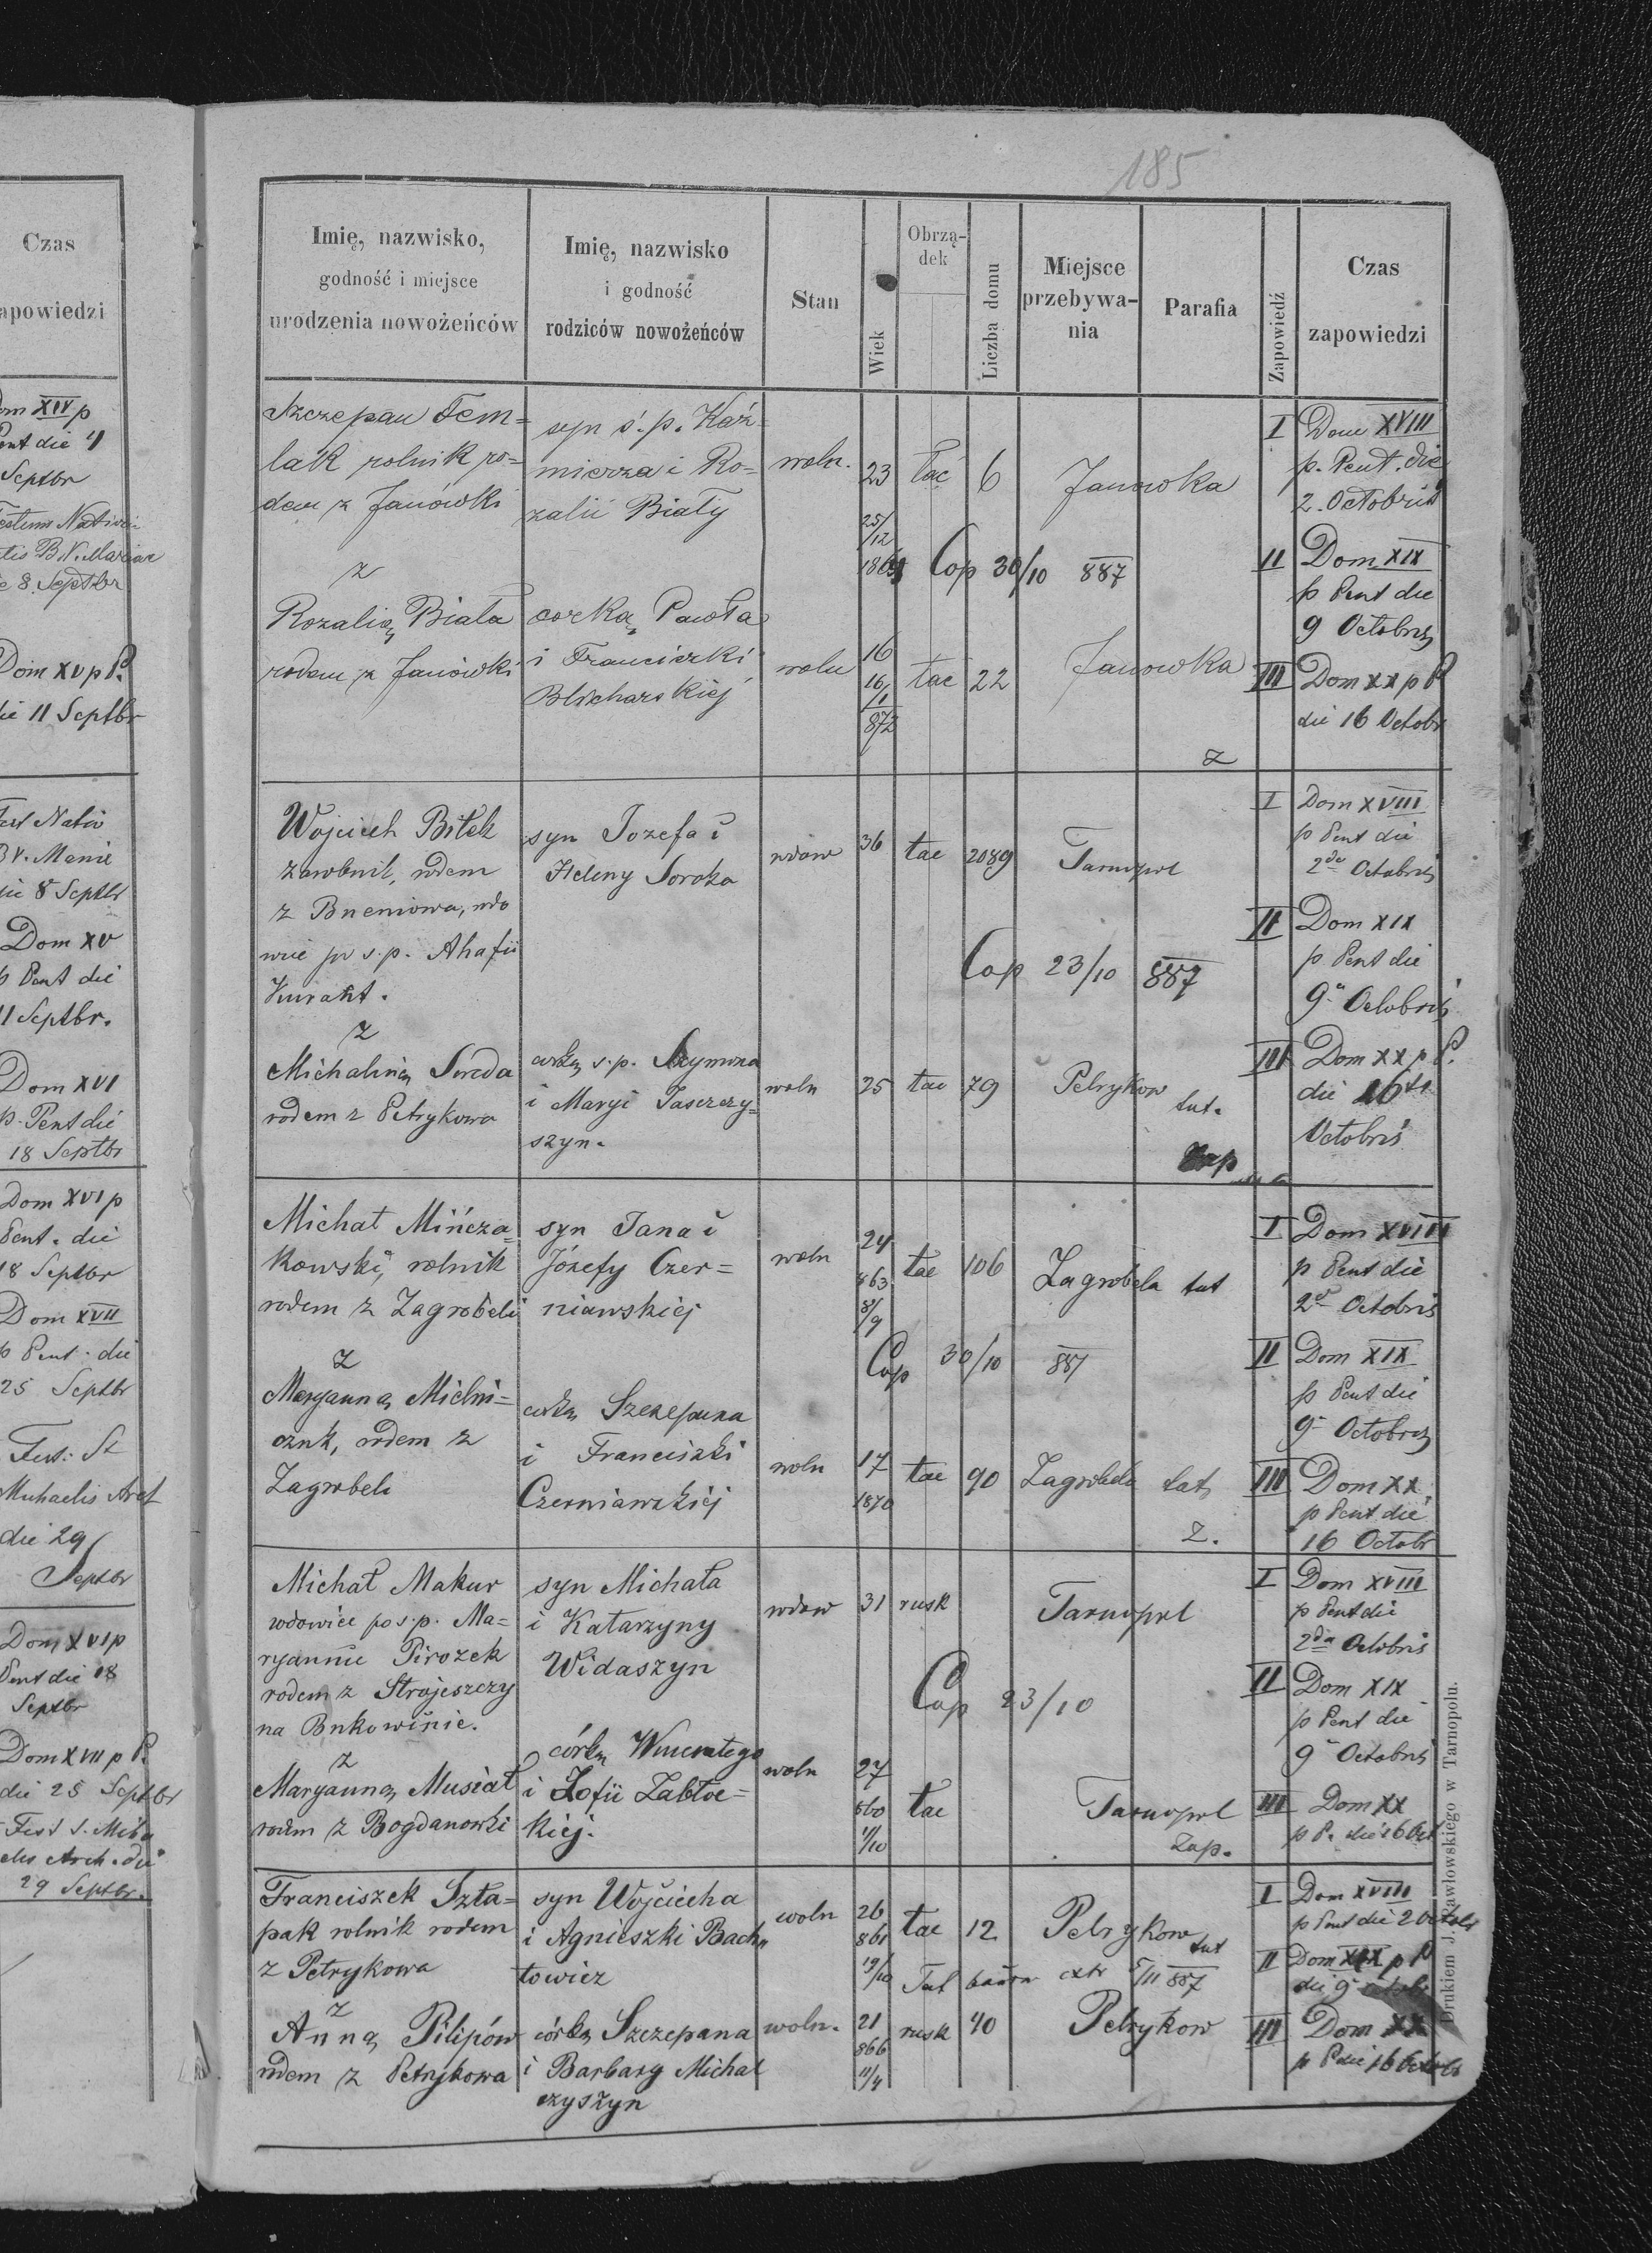 185
Czas
zapowiedzi
Dom XIV p
Pent die 4
Septbr
Festum Nativi
tatis B.V. Mariae
die 8. Septbr
Dom XV p P.
die 11 Septbr
Fest Nativ
B V. Marie
die 8 Septbr
Dom XV
p Pent die
11 Septbr.
Dom XVI
p. Pent die
18 Septbr
Dom XVI p
Pent. die
18 Septbr
Dom XVII
p Pent. die
25 Septbr
Fest: St
Michaelis Arch
die 29
Septbr
Dom XVI p
Pent die 18
Septbr
Dom XVII p P.
die 25 Septbr
Fest S. Micha
elis Arch. die
29 Septbr.
Imię, nazwisko,
godność i miejsce
urodzenia nowożeńców
Imię, nazwisko
i godność
rodziców nowożeńców
Stan
Wiek
Obrzą-
dek
Liczba domu
Miejsce
przebywa-
nia
Parafia
Zapowiedź
Czas
zapowiedzi
Szczepan Tem=
lak rolnik ro=
dem z Janówki
z
Rozalią Biała
rodem z Janówki
syn ś.p. Kaź=
mierza i Ro=
zalii Biały
corką Pawła
i Franciszki
Blicharskiej
woln. 23 łać 6 Janowka
25/12
Cop 30/10 887
woln 16 łać 22 Janowka
16/1
872
z
I Dom XVIII
p. Pent. die
2. Octobris
II Dom XIX
p Pent die
9 Octobris
III Dom XX p P
die 16 Octobr
Wojciech Bitek
zarobnik, rodem
z Bneniowa, wdo
wiec po s.p. Ahafii
z
Michaliną Sureda
rodem z Petrykowa
syn Jozefa i
Heleny Soroka
corką s.p. Szymona
i Maryi Jaszczy=
szyn.
wdow 36 łac 2089 Tarnopol
Cop 23/10 887
woln 25 łac 79 Petrykow tut.
Zap
I Dom XVIII
p Pent die
2da Octobris
II Dom XIX
p Pent die
9a Octobris
III Dom XX p P.
die 16ta
Octobris
Michał Mińcza=
kowski, rolnik
rodem z Zagrobeli
z
Maryanną Mielni=
czuk, rodem z
Zagrobeli
syn Jana i
Józefy Czer=
niawskiej
corką Szczepana
i Franciszki
Czerniawskiej
woln 24 łac 106 Zagrobela tut
863
8/9
Cop 30/10 887
woln 17 łac 90 Zagrobela tut
1870
Z.
I Dom XVIII
p Pent die
2a Octobris
II Dom XIX
p Pent die
9a Octobris
III Dom XX.
p Pent die
16 Octobr
Michał Makur
wdowiec po s.p. Ma=
ryannie Pirożek
rodem z Strojeszczy
na Bukowinie.
z
Maryanną Musiał
rodem z Bogdanowki
syn Michała
i Katarzyny
Widaszyn
córką Wincentego
i Zofii Zabłoc=
kiej.
wdow 31 rusk Tarnopol
Cop 23/10
woln 27 łac Tarnopol
860
1/10
Zap.
I Dom XVIII
p Pent die
2da Octobris
II Dom XIX
p Pent die
9a Octobris
III Dom XX
p P. die 16 Oct
Franciszek Szła=
pak rolnik rodem
z Petrykowa
z
Anną Pilipów
rodem z Petrykowa
syn Wojciecha
i Agnieszki Bach
towicz
córką Szczepana
i Barbary Michal
czyszyn
woln 26 łac 12 Petrykow tut
861
19/10 Tut 5/11 887
woln. 21 rusk 40 Petrykow
866
11/4
I Dom XVIII
p Pent die 2 Octobr
II Dom XIX p P
die 9
III Dom XX
p P die 16 Octobr
Drukiem J. Pawłowskiego w Tarnopolu.